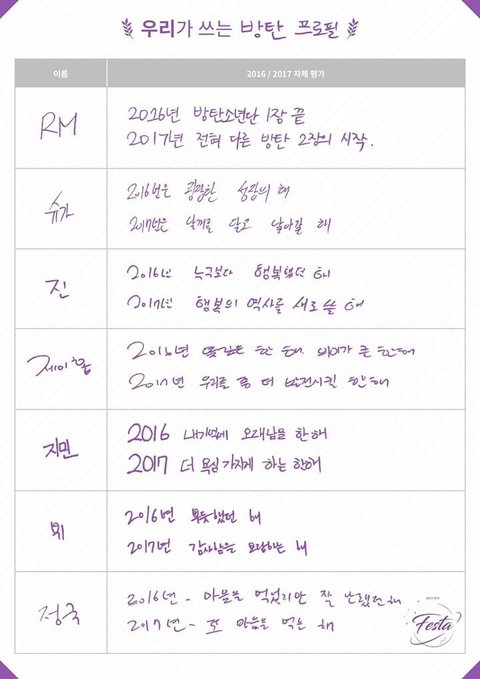 우리가 쓰는 방탄 프로필
이름
2016 / 2017 자체 평가
RM
2016년 방탄소년단 1장 끝
2017년 전혀 다른 방탄 2장의 시작.
슈가
2016년은 굉장한 성장의 해
2017년은 날개를 달고 날아갈 해
진
2016년 누구보다 행복했던 해
2017년 행복의 역사를 새로 쓸 해
제이홉
2016년 뜻깊은 한 해. 의미가 큰 한해
2017년 우리를 좀 더 발전시킬 한해
지민
2016 내 기억에 오래남을 한 해
2017 더 욕심 가지게 하는 한해
뷔
2016년 뿌듯했던 해
2017년 감사함을 보답하는 해
정국
2016년 - 마음을 먹었지만 잘 안됐던 해
2017년 - 또 마음을 먹은 해
Festa